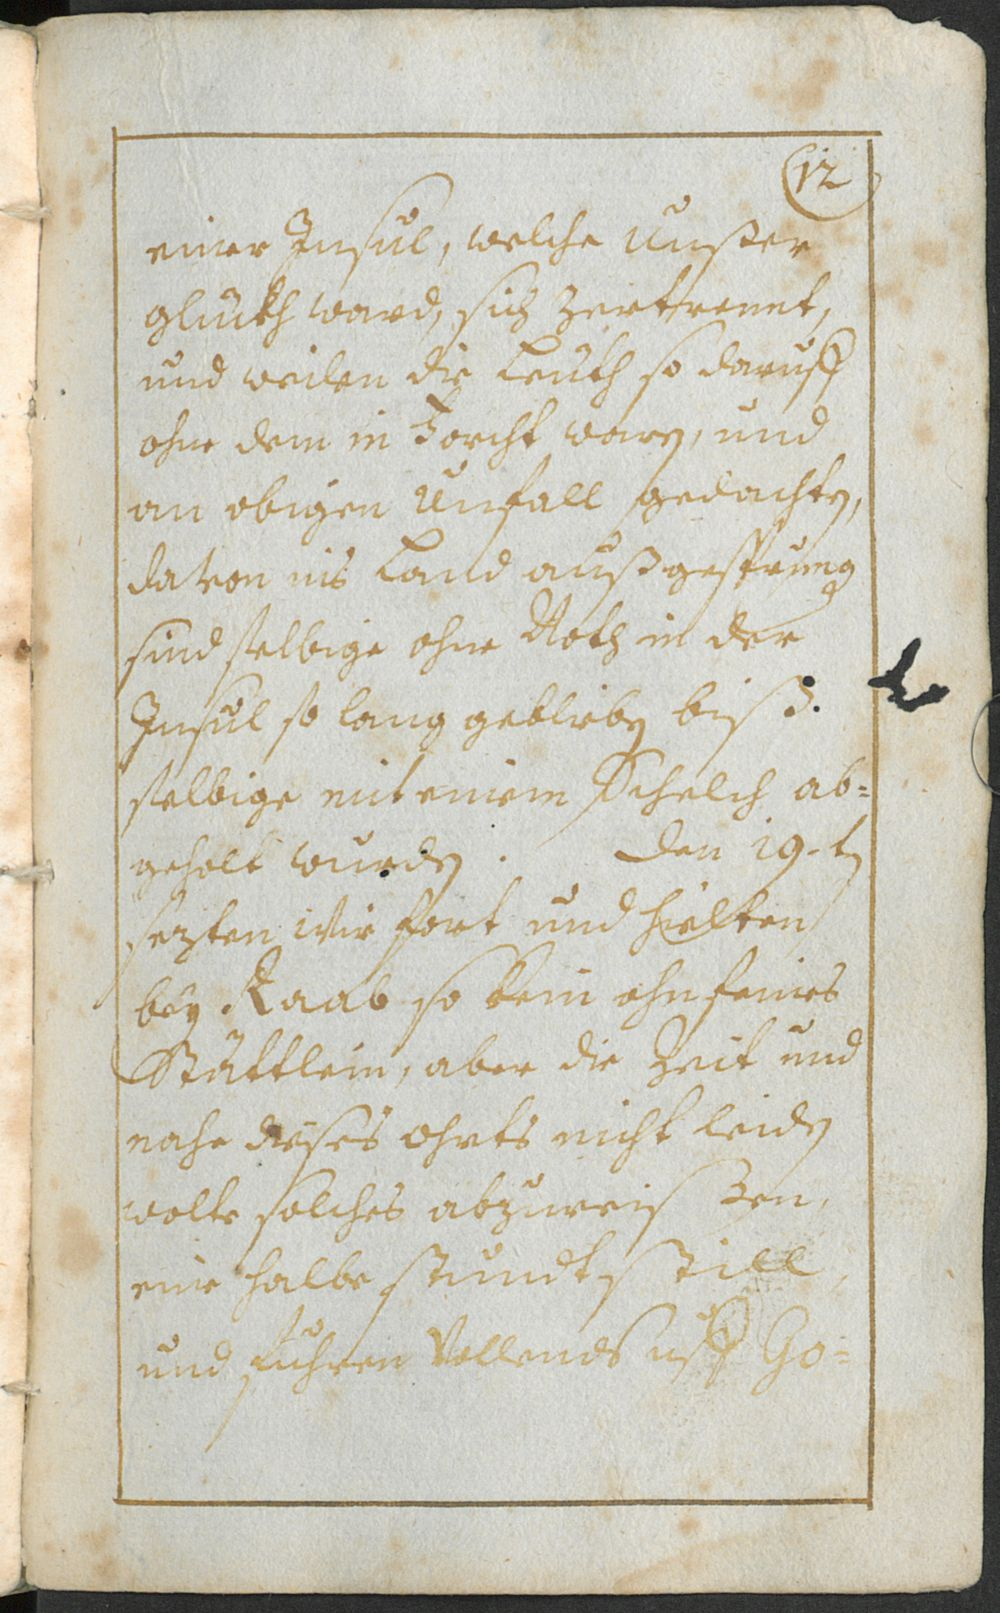 12
einer Insul, welche Unßer
glückh ward, sich zertrennt,
und weilen die Leuth so daruff
ohne dem in Forcht warn, und
an obigen Unfall gedachtn,
davon ins Land außgesprung
sind selbige ohne Noth in der
Insul so lang gebliebn biß.
selbige mit einem Schelch ab=
geholt wurdn. Den 19.tn
sezten Wir fort und hielten
bey Raab so kein ohnfeines
Stättlein, aber die Zeit und
nahe dieses ohrts nicht leidn
wolte solches abzureißen,
eine halbe stundt still,
und fuhren Vollends uff Go=